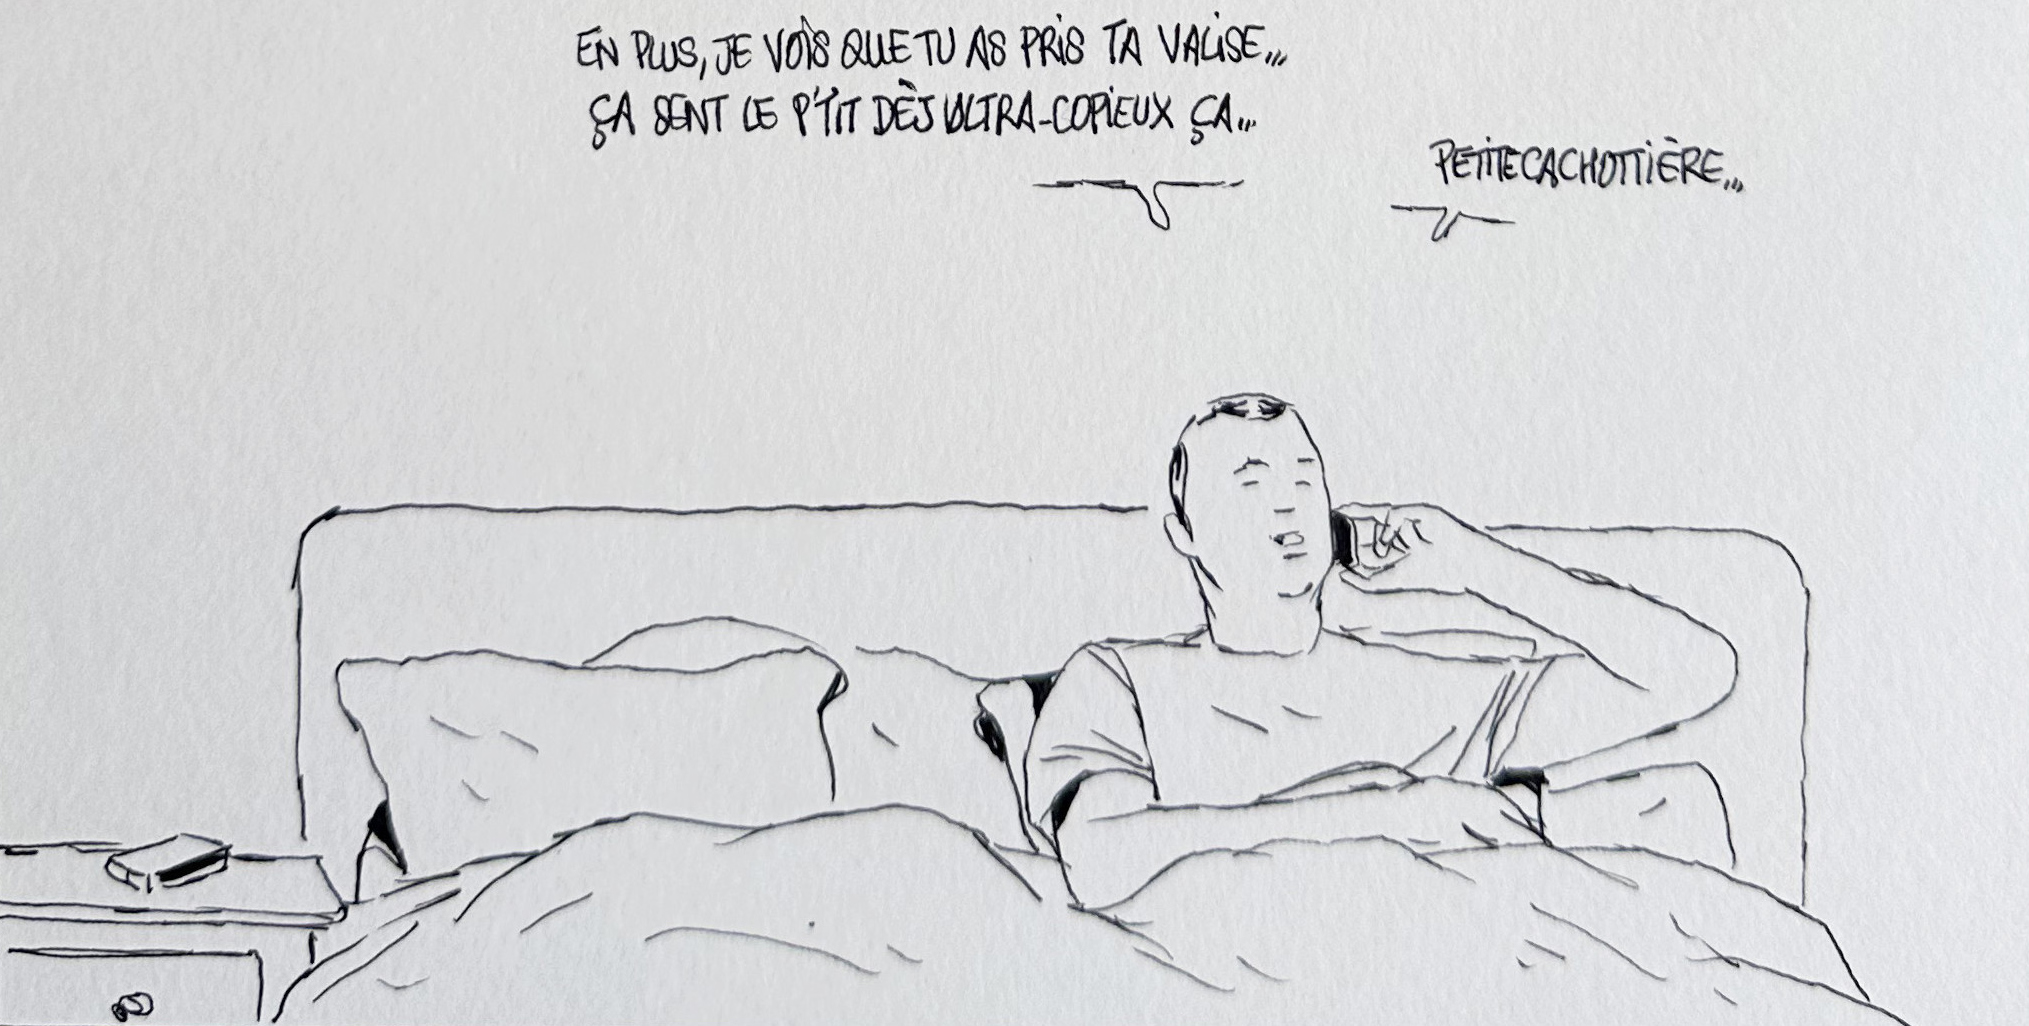 EN PLUS, JE VOIS QUE TU AS PRIS TA VALISE...
ÇA SENT LE P'TIT DÈJ ULTRA-COPIEUX ÇA...
PETITE CACHOTTIÈRE...